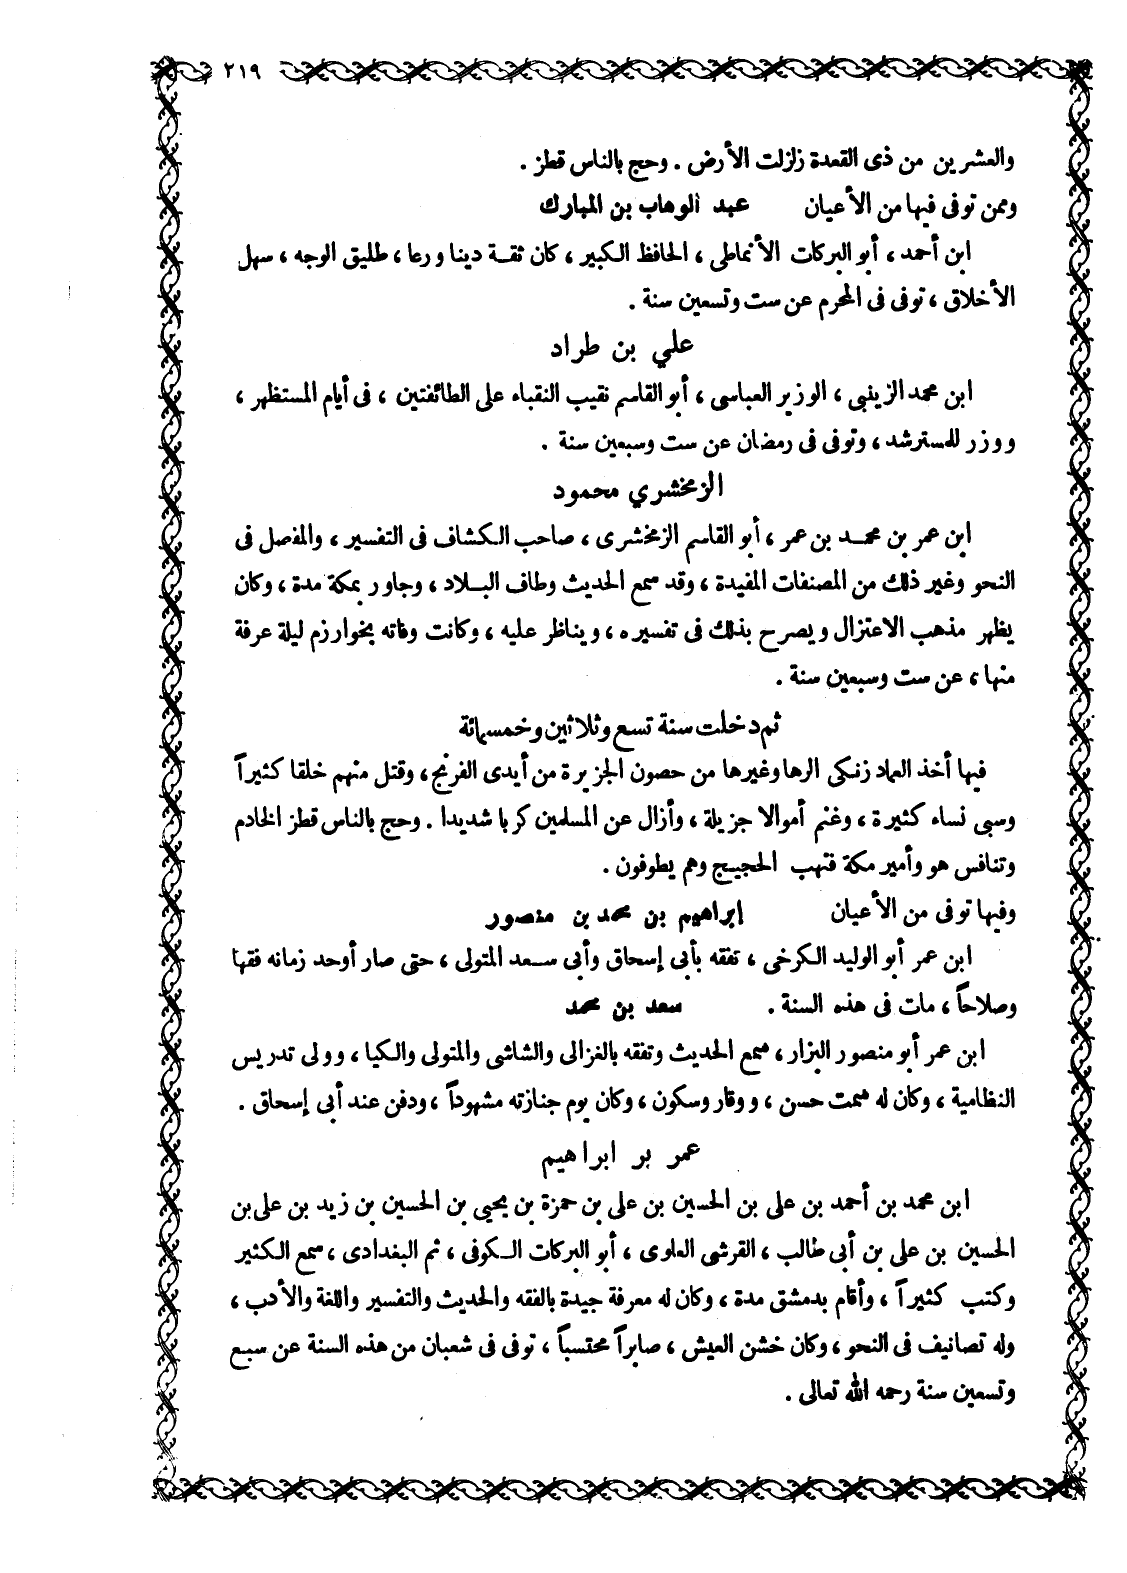 ٢١٩
والعشرين من ذى القعدة زلزلت الأرض . وحج بالناس قطز .
وممن توفى فيها من الأعيان عبد الوهاب بن المبارك
ابن أحمد ، أبو البركات الأنماطى ، الحافظ الكبير ، كان ثقة دينا ورعا ، طليق الوجه ، سهل
الأخلاق ، توفى فى المحرم عن ست وتسعين سنة .
علي بن طراد
ابن محمد الزينبى ، الوزير العباسى ، أبو القاسم نقيب النقباء على الطائفتين ، فى أيام المستظهر ،
ووزر للمسترشد ، وتوفى فى رمضان عن ست وسبعين سنة .
الزمخشري محمود
ابن عمر بن محمد بن عمر ، أبو القاسم الزمخشرى ، صاحب الكشاف فى التفسير ، والمفصل فى
النحو وغير ذلك من المصنفات المفيدة ، وقد سمع الحديث وطاف البلاد ، وجاور بمكة مدة ، وكان
يظهر مذهب الاعتزال ويصرح بذلك فى تفسيره ، ويناظر عليه ، وكانت وفاته بخوارزم ليلة عرفة
منها ، عن ست وسبعين سنة .
ثم دخلت سنة تسع وثلاثين وخمسمائة
فيها أخذ العماد زنكى الرها وغيرها من حصون الجزيرة من أيدى الفرنج ، وقتل منهم خلقا كثيراً
وسبى نساء كثيرة ، وغنم أموالا جزيلة ، وأزال عن المسلمين كربا شديدا . وحج بالناس قطز الخادم
وتنافس هو وأمير مكة فنهب الحجيج وهم يطوفون .
وفيها توفى من الأعيان إبراهيم بن محمد بن منصور
ابن عمر أبو الوليد الكرخى ، تفقه بأبى إسحاق وأبى سعد المتولى ، حتى صار أوحد زمانه فقها
وصلاحاً ، مات فى هذه السنة . سعد بن محمد
ابن عمر أبو منصور البزار ، سمع الحديث وتفقه بالغزالى والشاشى والمتولى والكيا ، وولى تدريس
النظامية ، وكان له سمت حسن ، ووقار وسكون ، وكان يوم جنازته مشهوداً ، ودفن عند أبى إسحاق .
عمر بر ابراهيم
ابن محمد بن أحمد بن على بن الحسين بن على بن حمزة بن يحيى بن الحسين بن زيد بن على بن
الحسين بن على بن أبى طالب ، القرشى العلوى ، أبو البركات الكوفى ، ثم البغدادى ، سمع الكثير
وكتب كثيراً ، وأقام بدمشق مدة ، وكان له معرفة جيدة بالفقه والحديث والتفسير واللغة والأدب ،
وله تصانيف فى النحو ، وكان خشن العيش ، صابراً محتسباً ، توفى فى شعبان من هذه السنة عن سبع
وتسعين سنة رحمه الله تعالى .